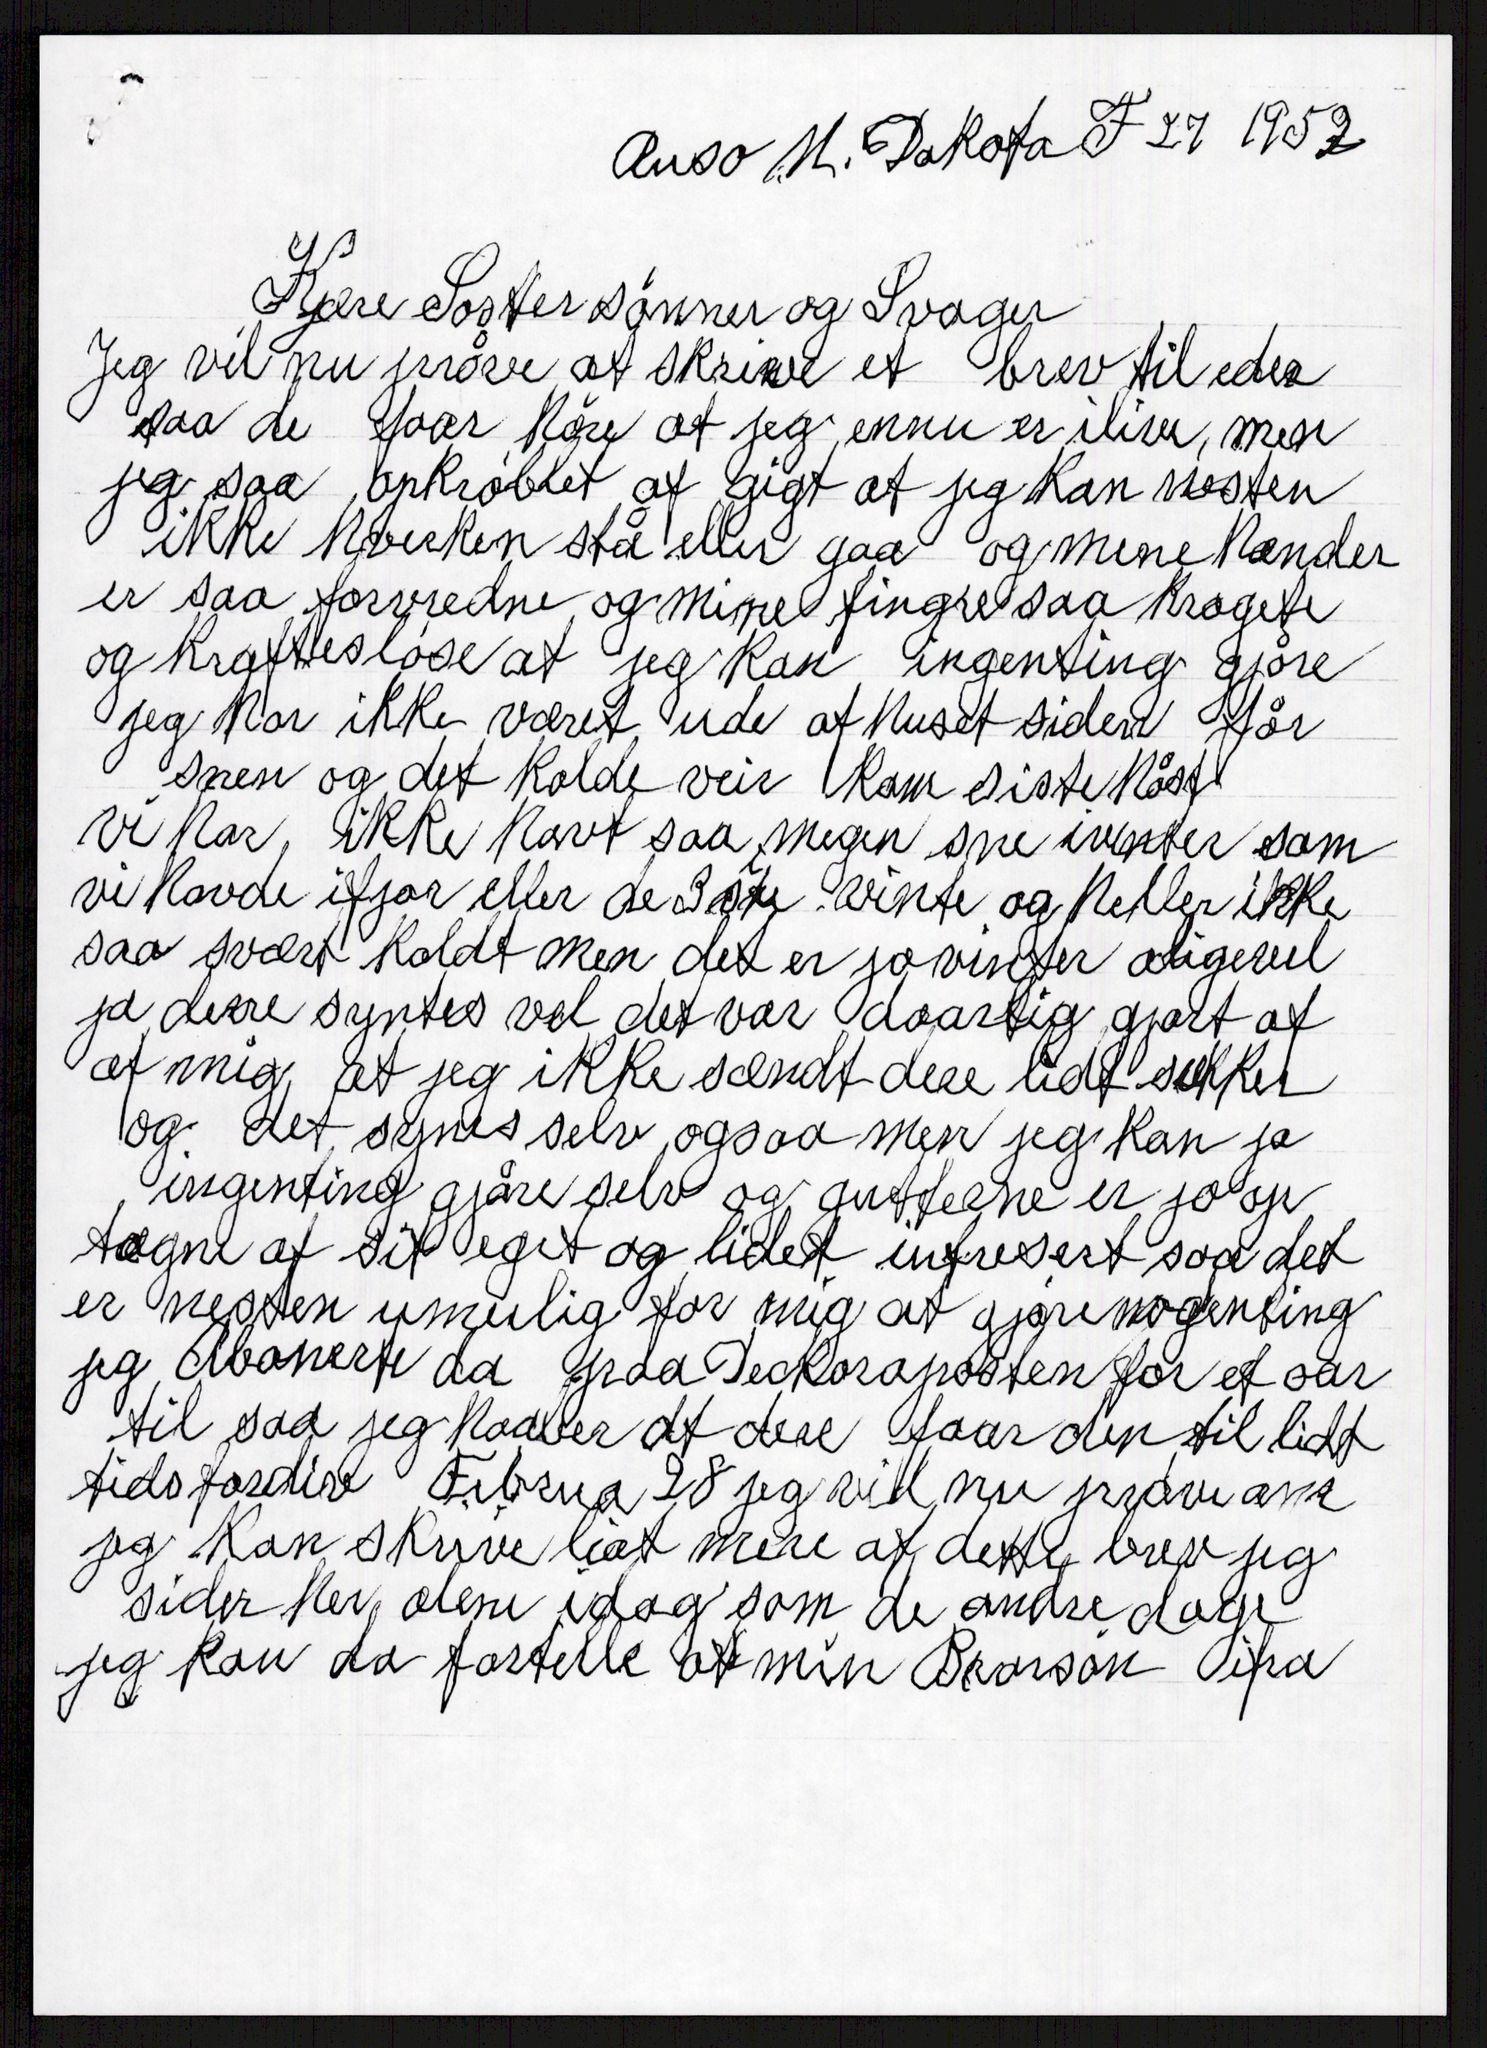 Auso N. Dakota F 27 1952
Kjære Søstersønner og Svager
Jeg vil nu prøve at skrive et brev til eder
saa de faar høre at jeg ennu er ilive, men
jeg saa opkrøblet af gigt at jeg kan nesten
ikke hverken stå eller gaa og mine hænder
er saa forvredne og mine fingre saa krogete
og kraftesløse at jeg kan ingenting gjøre
jeg har ikke været ude af huset siden før
snen og det kolde veir kom siste høst
Vi har ikke havt saa megen sne ivinter som
vi havde ifjor eller de 3 siste vinte og heller ikke
saa svært koldt men det er jo vinter aligevel
ja dere syntes vel det var daarlig gjort af
af mig at jeg ikke sændt dere lidt sukker
og det synes selv ogsaa men jeg kan jo
ingenting gjøre selv og gutterne er jo op
tagne af sit eget og lidet intresert saa det
er nesten umulig for mig at gjøre nogenting
jeg Abonerte da paa Deckoraposten for et aar
til saa jeg haaber at dere faar den til lidt
tidsfordriv Februa 28 jeg vil nu prøve om
jeg kan skrive lidt mere af dette brev jeg
sider her alene idag som de andre dage
jeg kan da fortelle at min Brorsøn ifra